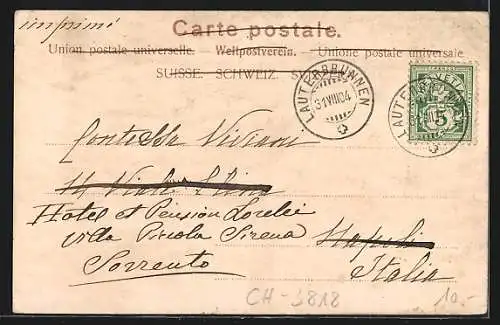 imprimé
Carte postale.
Union postale universelle. — Weltpostverein. — Unione postale universale
SUISSE. SCHWEIZ.
LAUTERBRUNNEN
31 VIII 04
LAUTERBRUNNEN
5
Contessa Viviani
14 Viale Elina
Hôtel et Pension Lorelei
villa Piccola Sirena Napoli
Sorrento Italia
CH-3818 10.-